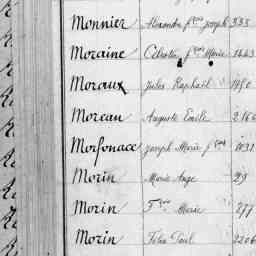 Monnier Alexandre fçois Joseph 333
Moraine Célestin fçois Marie 1443
Moraux Jules Raphaël 1490
Moreau Auguste Emile 2166
Morfonace Joseph Marie fçois 1031
Morin Marie Ange 29
Morin fçois Marie 277
Morin Félix Paul 2206